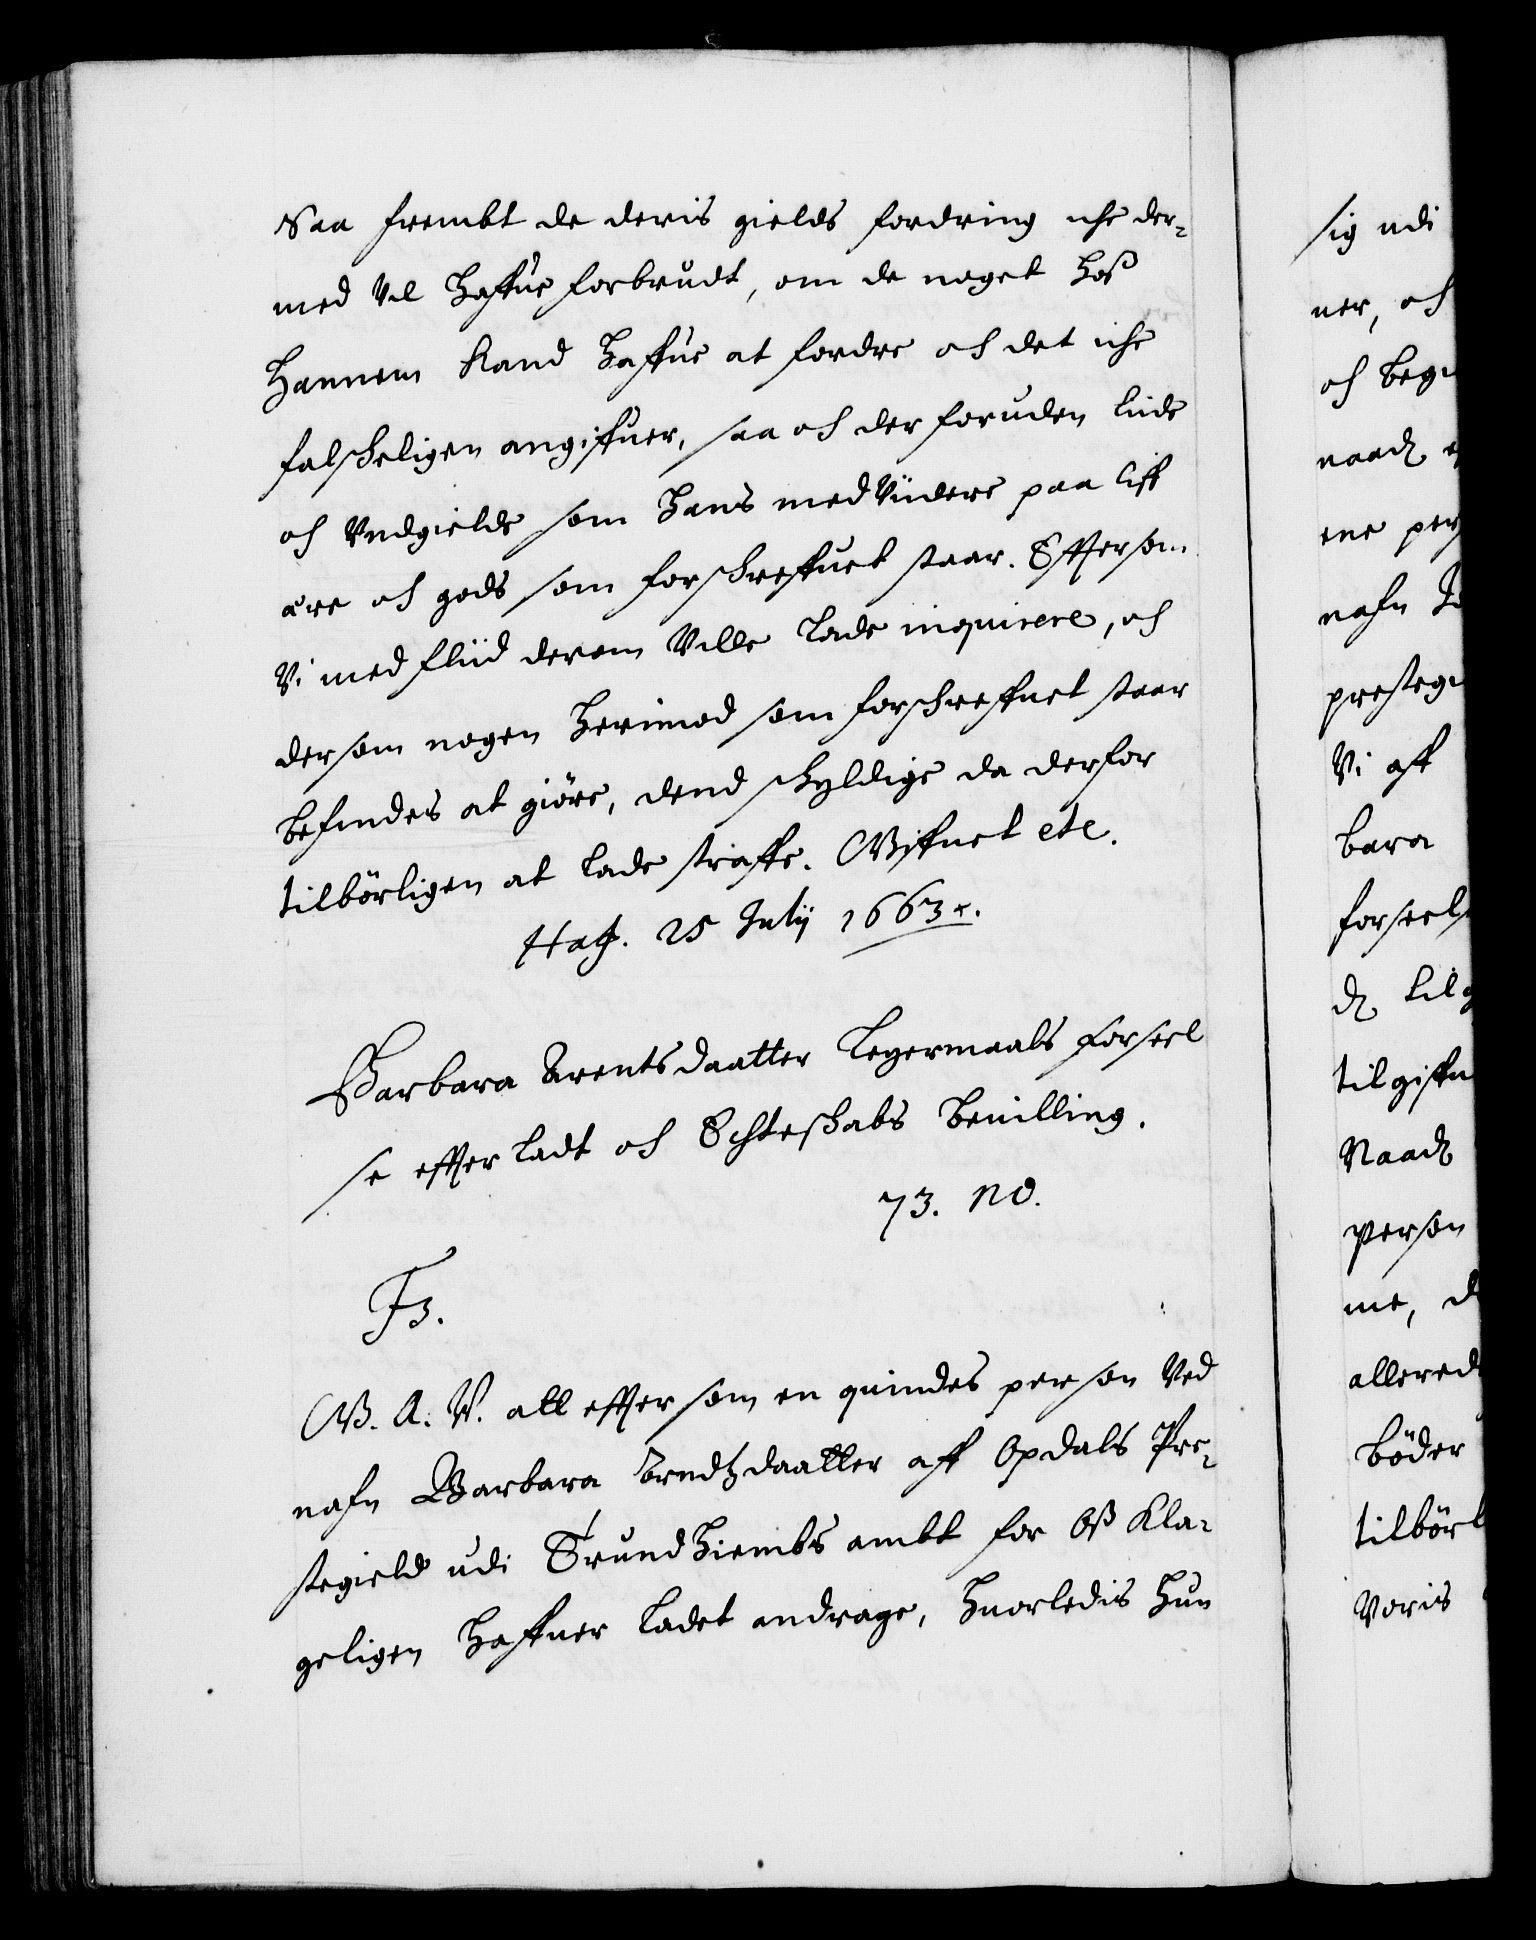 Saa frembt de deris gields fordring iche der-
med vil haffue forbrudt, om de noget hoß
hannem kand haffue at fordre och det iche
falskeligen angiffuer, saa och der foruden liide
och undgielde som hans medviidere paa liff
ære och gods som forschreffuet staar. Effter som
Vi med fliid derom ville lade inqvirere, och
dersom nogen herimod som forschreffuet staar
befindes at giöre, dend skyldige da derfor
tilbörligen at lade straffe. Giffuet etc.
Haf. 25 Julij 1663.
Barbara Arentsdaatter Legermaals forseel
se effterladt och Echteskabs bevilling.
73. No.
F3.
G. A. V. att effter som en quindes person ved
nafn Barbara Arndtzdaatter aff Opdals Pre-
stegield udi Trundhiembs ambt for oß kla-
geligen haffuer ladet andrage, huorledis hun
sig udi
ner, och
och beg
naad
ene per
nafn
presteg
Vi aff
bara
forseels
til
tilgiffu
Naad
person
me, d
allered
böder
tilbörl
Voris